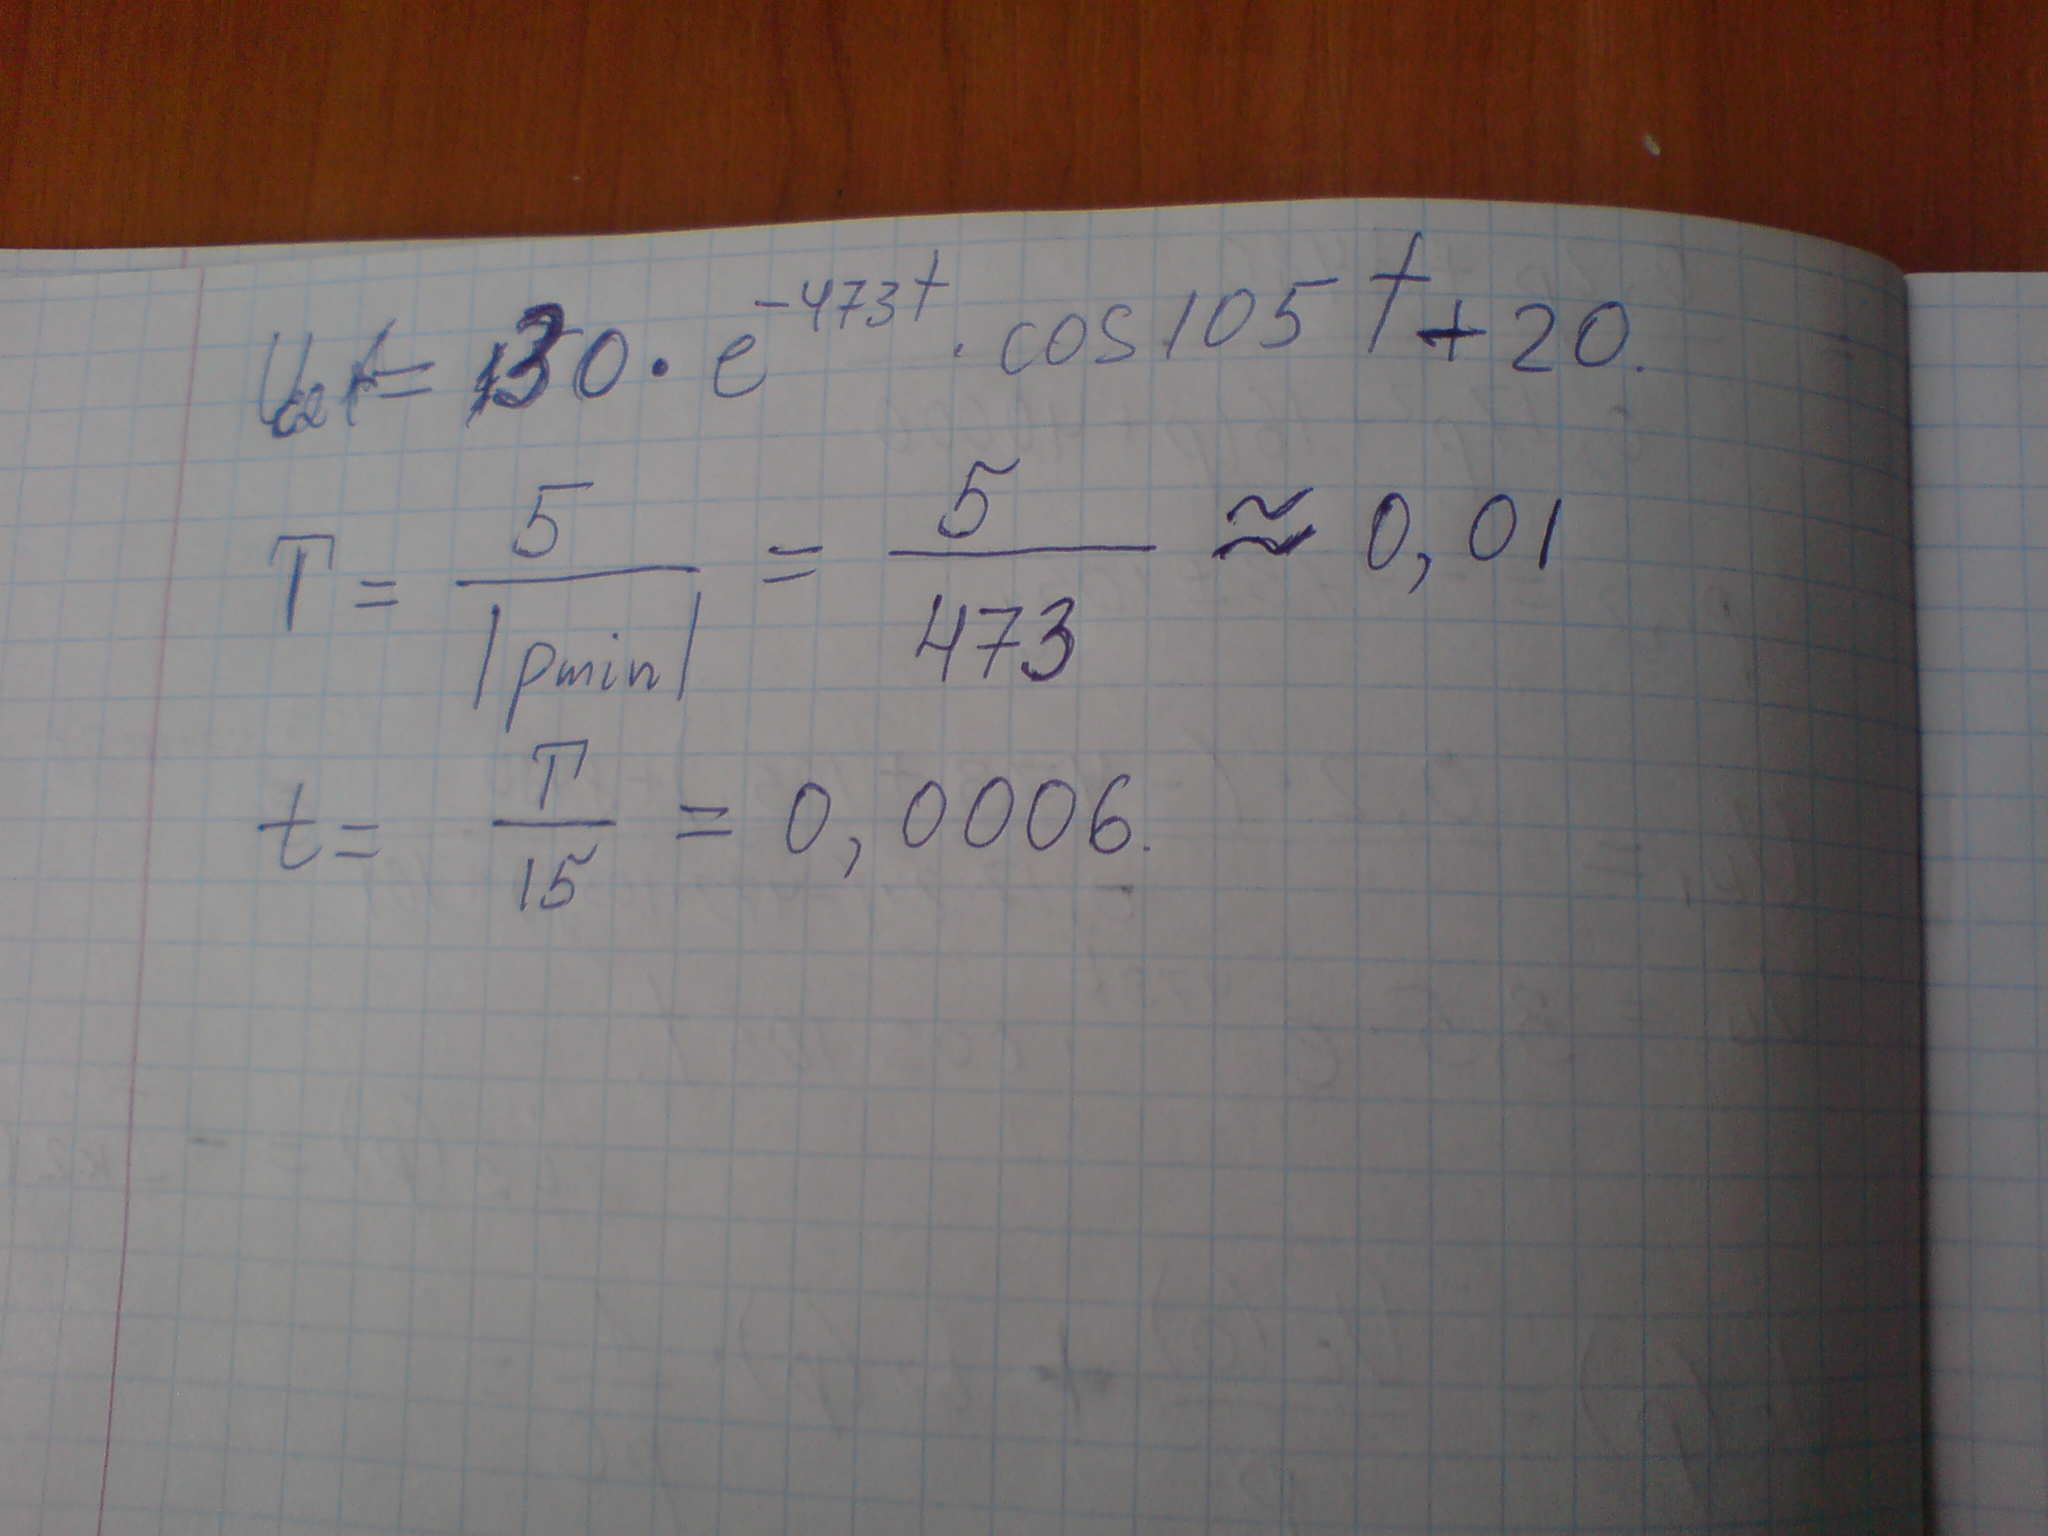 Uc2t = 130 · e^{-473t} · cos 105 t + 20.
T = 5 / |pmin| = 5 / 473 ≈ 0,01
t = T / 15 = 0,0006.